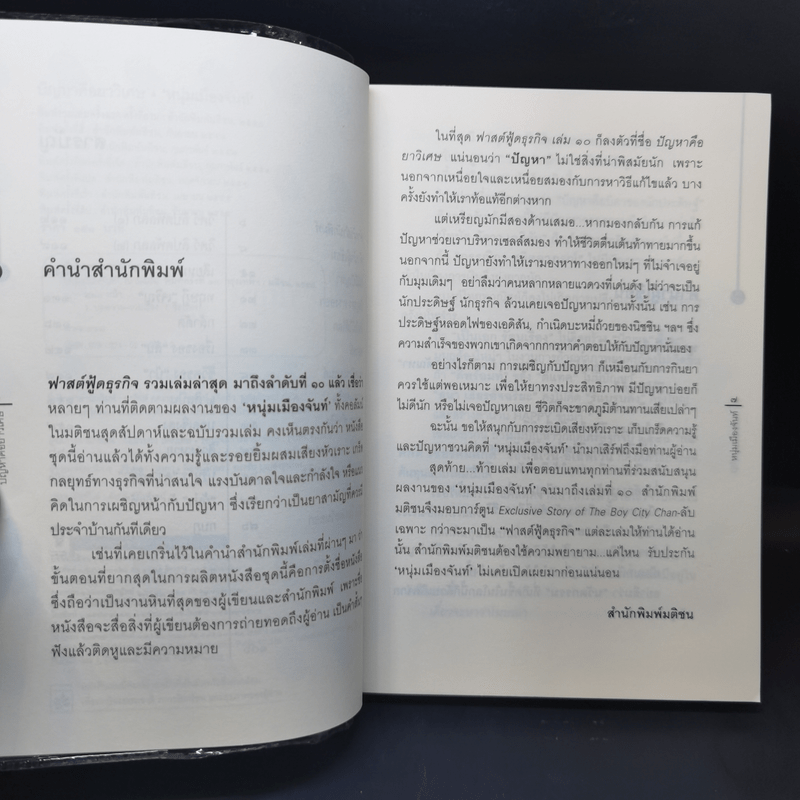 คำนำสำนักพิมพ์
ฟาสต์ฟู้ดธุรกิจ รวมเล่มล่าสุด มาถึงลำดับที่ ๑๐ แล้ว เชื่อว่า
หลายๆ ท่านที่ติดตามผลงานของ ‘หนุ่มเมืองจันท์’ ทั้งคอลัมน์
ในมติชนสุดสัปดาห์และฉบับรวมเล่ม คงเห็นตรงกันว่า หนังสือ
ชุดนี้อ่านแล้วได้ทั้งความรู้และรอยยิ้มผสมเสียงหัวเราะ เกร็ด
กลยุทธ์ทางธุรกิจที่น่าสนใจ แรงบันดาลใจและกำลังใจ หรือแนว
คิดในการเผชิญหน้ากับปัญหา ซึ่งเรียกว่าเป็นยาสามัญที่ควรมี
ประจำบ้านกันทีเดียว
เช่นที่เคยเกริ่นไว้ในคำนำสำนักพิมพ์เล่มที่ผ่านๆ มา ว่า
ขั้นตอนที่ยากสุดในการผลิตหนังสือชุดนี้คือการตั้งชื่อหนังสือ
ซึ่งถือว่าเป็นงานหินที่สุดของผู้เขียนและสำนักพิมพ์ เพราะชื่อ
หนังสือจะสื่อสิ่งที่ผู้เขียนต้องการถ่ายทอดถึงผู้อ่าน เป็นคำสั้นๆ
ฟังแล้วติดหูและมีความหมาย
ในที่สุด ฟาสต์ฟู้ดธุรกิจ เล่ม ๑๐ ก็ลงตัวที่ชื่อ ปัญหาคือ
ยาวิเศษ แน่นอนว่า “ปัญหา” ไม่ใช่สิ่งที่น่าพิสมัยนัก เพราะ
นอกจากเหนื่อยใจและเหนื่อยสมองกับการหาวิธีแก้ไขแล้ว บาง
ครั้งยังทำให้เราท้อแท้อีกต่างหาก
แต่เหรียญมักมีสองด้านเสมอ...หากมองกลับกัน การแก้
ปัญหาช่วยเราบริหารเซลล์สมอง ทำให้ชีวิตตื่นเต้นท้าทายมากขึ้น
นอกจากนี้ ปัญหายังทำให้เรามองหาทางออกใหม่ๆ ที่ไม่จำเจอยู่
กับมุมเดิมๆ อย่าลืมว่าคนหลากหลายแวดวงที่เด่นดัง ไม่ว่าจะเป็น
นักประดิษฐ์ นักธุรกิจ ล้วนเคยเจอปัญหามาก่อนทั้งนั้น เช่น การ
ประดิษฐ์หลอดไฟของเอดิสัน, กำเนิดบะหมี่ถ้วยของนิชชิน ฯลฯ ซึ่ง
ความสำเร็จของพวกเขาเกิดจากการหาคำตอบให้กับปัญหานั่นเอง
อย่างไรก็ตาม การเผชิญกับปัญหา ก็เหมือนกับการกินยา
ควรใช้แต่พอเหมาะ เพื่อให้ยาทรงประสิทธิภาพ มีปัญหาบ่อยก็
ไม่ดีนัก หรือไม่เจอปัญหาเลย ชีวิตก็จะขาดภูมิต้านทานเสียเปล่าๆ
ฉะนั้น ขอให้สนุกกับการระเบิดเสียงหัวเราะ เก็บเกร็ดความรู้
และปัญหาชวนคิดที่ ‘หนุ่มเมืองจันท์’ นำมาเสิร์ฟถึงมือท่านผู้อ่าน
สุดท้าย...ท้ายเล่ม เพื่อตอบแทนทุกท่านที่ร่วมสนับสนุน
ผลงานของ ‘หนุ่มเมืองจันท์’ จนมาถึงเล่มที่ ๑๐ สำนักพิมพ์
มติชนจึงมอบการ์ตูน Exclusive Story of The Boy City Chan-ลับ
เฉพาะ กว่าจะมาเป็น “ฟาสต์ฟู้ดธุรกิจ” แต่ละเล่มให้ท่านได้อ่าน
นั้น สำนักพิมพ์มติชนต้องใช้ความพยายาม...แค่ไหน รับประกัน
‘หนุ่มเมืองจันท์’ ไม่เคยเปิดเผยมาก่อนแน่นอน
สำนักพิมพ์มติชน
หนุ่มเมืองจันท์